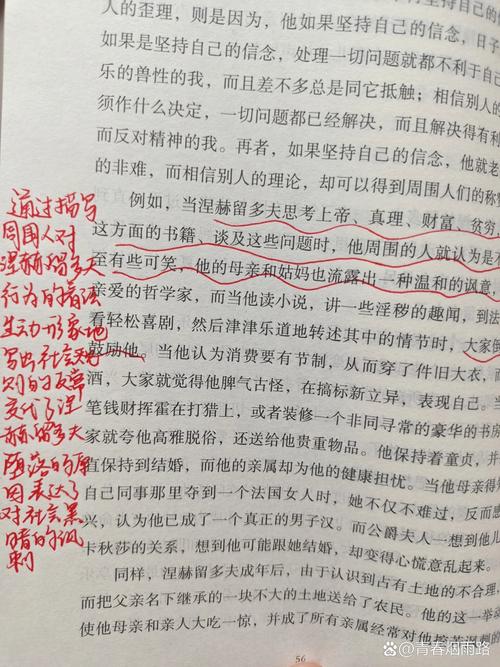 人的歪理，则是因为，他如果坚持自己的信念，日子
如果是坚持自己的信念，处理一切问题就都不利于自己
乐的兽性的我，而且差不多总是同它抵触；相信别人的
须作什么决定，一切问题都已经解决，而且解决得有利
而反对精神的我。再者，如果坚持自己的信念，他就老
的非难，而相信别人的理论，却可以得到周围人们的称
例如，当涅赫留多夫思考上帝、真理、财富、贫穷，
这方面的书籍、谈及这些问题时，他周围的人就认为是
至有些可笑，他的母亲和姑妈也流露出一种温和的讽意，
亲爱的哲学家，而当他读小说，讲一些淫秽的趣闻，到法
看轻松喜剧，然后津津乐道地转述其中的情节时，大家
鼓励他。当他认为消费要有节制，从而穿了件旧大衣，而
酒，大家就觉得他脾气古怪，在搞标新立异，表现自己。当
笔钱财挥霍在打猎上，或者装修一个非同寻常的豪华的书房
家就夸他高雅脱俗，还送给他贵重物品。他保持着童贞，并
直保持到结婚，而他的亲属却为他的健康担忧。当他母亲得知
自己同事那里夺到一个法国女人时，她不仅不难过，反而感
兴，认为他已成了一个真正的男子汉。而公爵夫人一想到他
卡秋莎的关系，想到他可能跟她结婚，却变得心慌意乱起来。
同样，涅赫留多夫成年后，由于认识到占有土地的不合理，
而把父亲名下继承的一块不大的土地送给了农民。他的这一举
使他母亲和亲人大吃一惊，并成了所有亲属经常对他挖苦讽刺的
56
通过描写
周围人对
涅赫留多夫
行为的看法
生动形象地
写出社会
则的反常
交代了涅
赫留多夫
堕落的原
因表达了
对社会黑
暗的讽
刺
@青春烟雨路